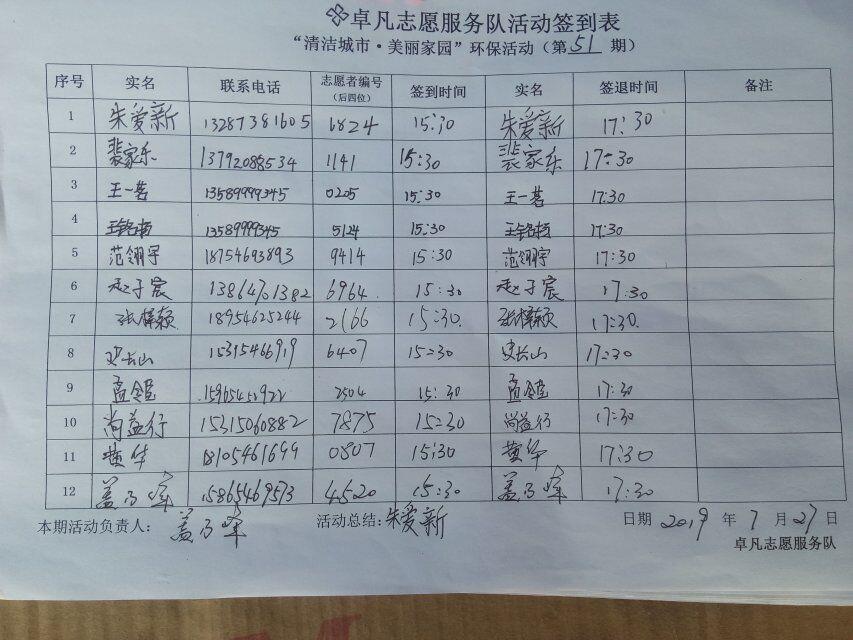 卓凡志愿服务队活动签到表
“清洁城市·美丽家园”环保活动（第 51 期）
序号 实名 联系电话 志愿者编号（后四位） 签到时间 实名 签退时间 备注
1 朱爱新 13287381605 6824 15:30 朱爱新 17:30
2 裴家乐 13792088534 1141 15:30 裴家乐 17:30
3 王一茗 13589999345 0205 15:30 王一茗 17:30
4 13589999345 5124 15:30 17:30
5 范翎宇 18754693893 9414 15:30 范翎宇 17:30
6 赵子宸 13864701382 6964 15:30 赵子宸 17:30
7 张梓颖 18954625244 2166 15:30 张梓颖 17:30
8 史长山 15315466919 6407 15:30 史长山 17:30
9 孟 2504 15:30 孟 17:30
10 尚益行 15315060882 7875 15:30 尚益行 17:30
11 黄华 18105461699 0807 15:30 黄华 17:30
12 盖乃峰 15865469573 4520 15:30 盖乃峰 17:30
本期活动负责人： 盖乃峰 活动总结: 朱爱新 日期 2019 年 7 月 27 日
卓凡志愿服务队